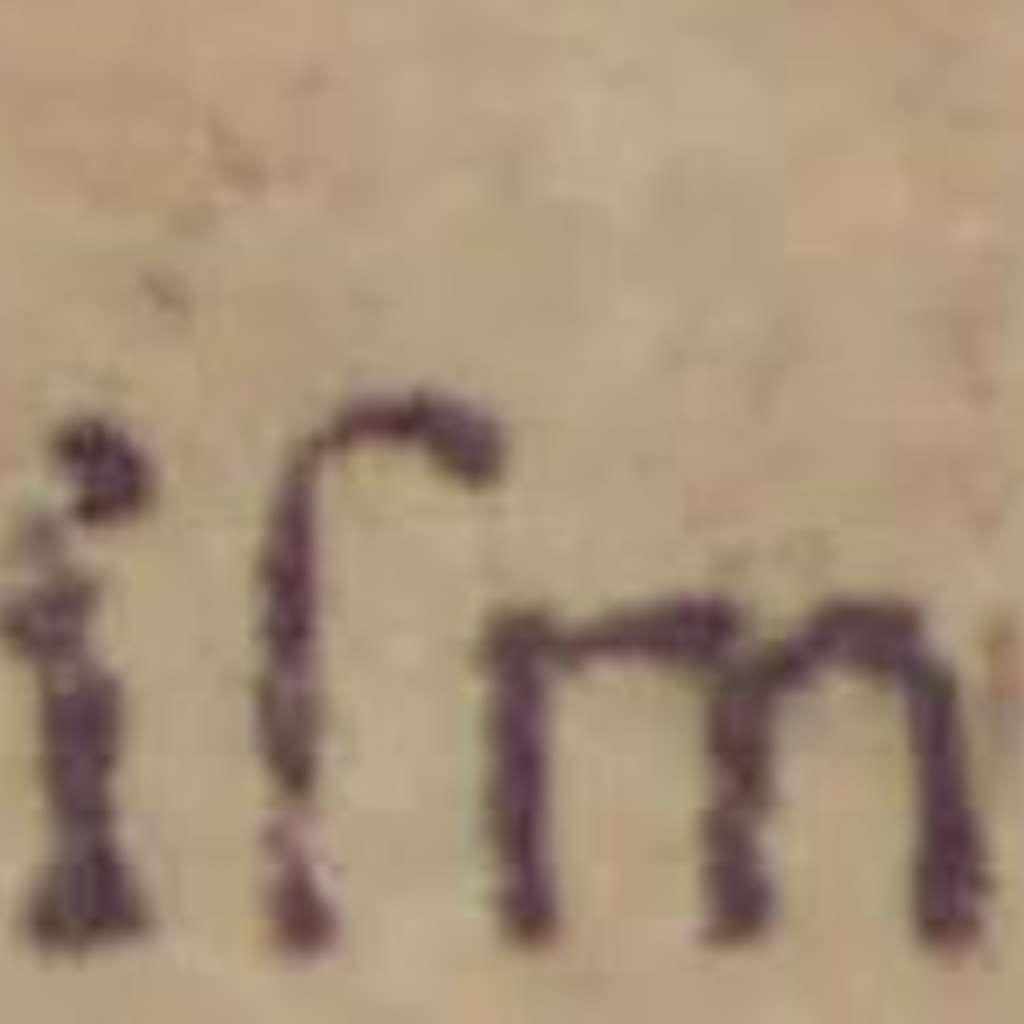 iſm